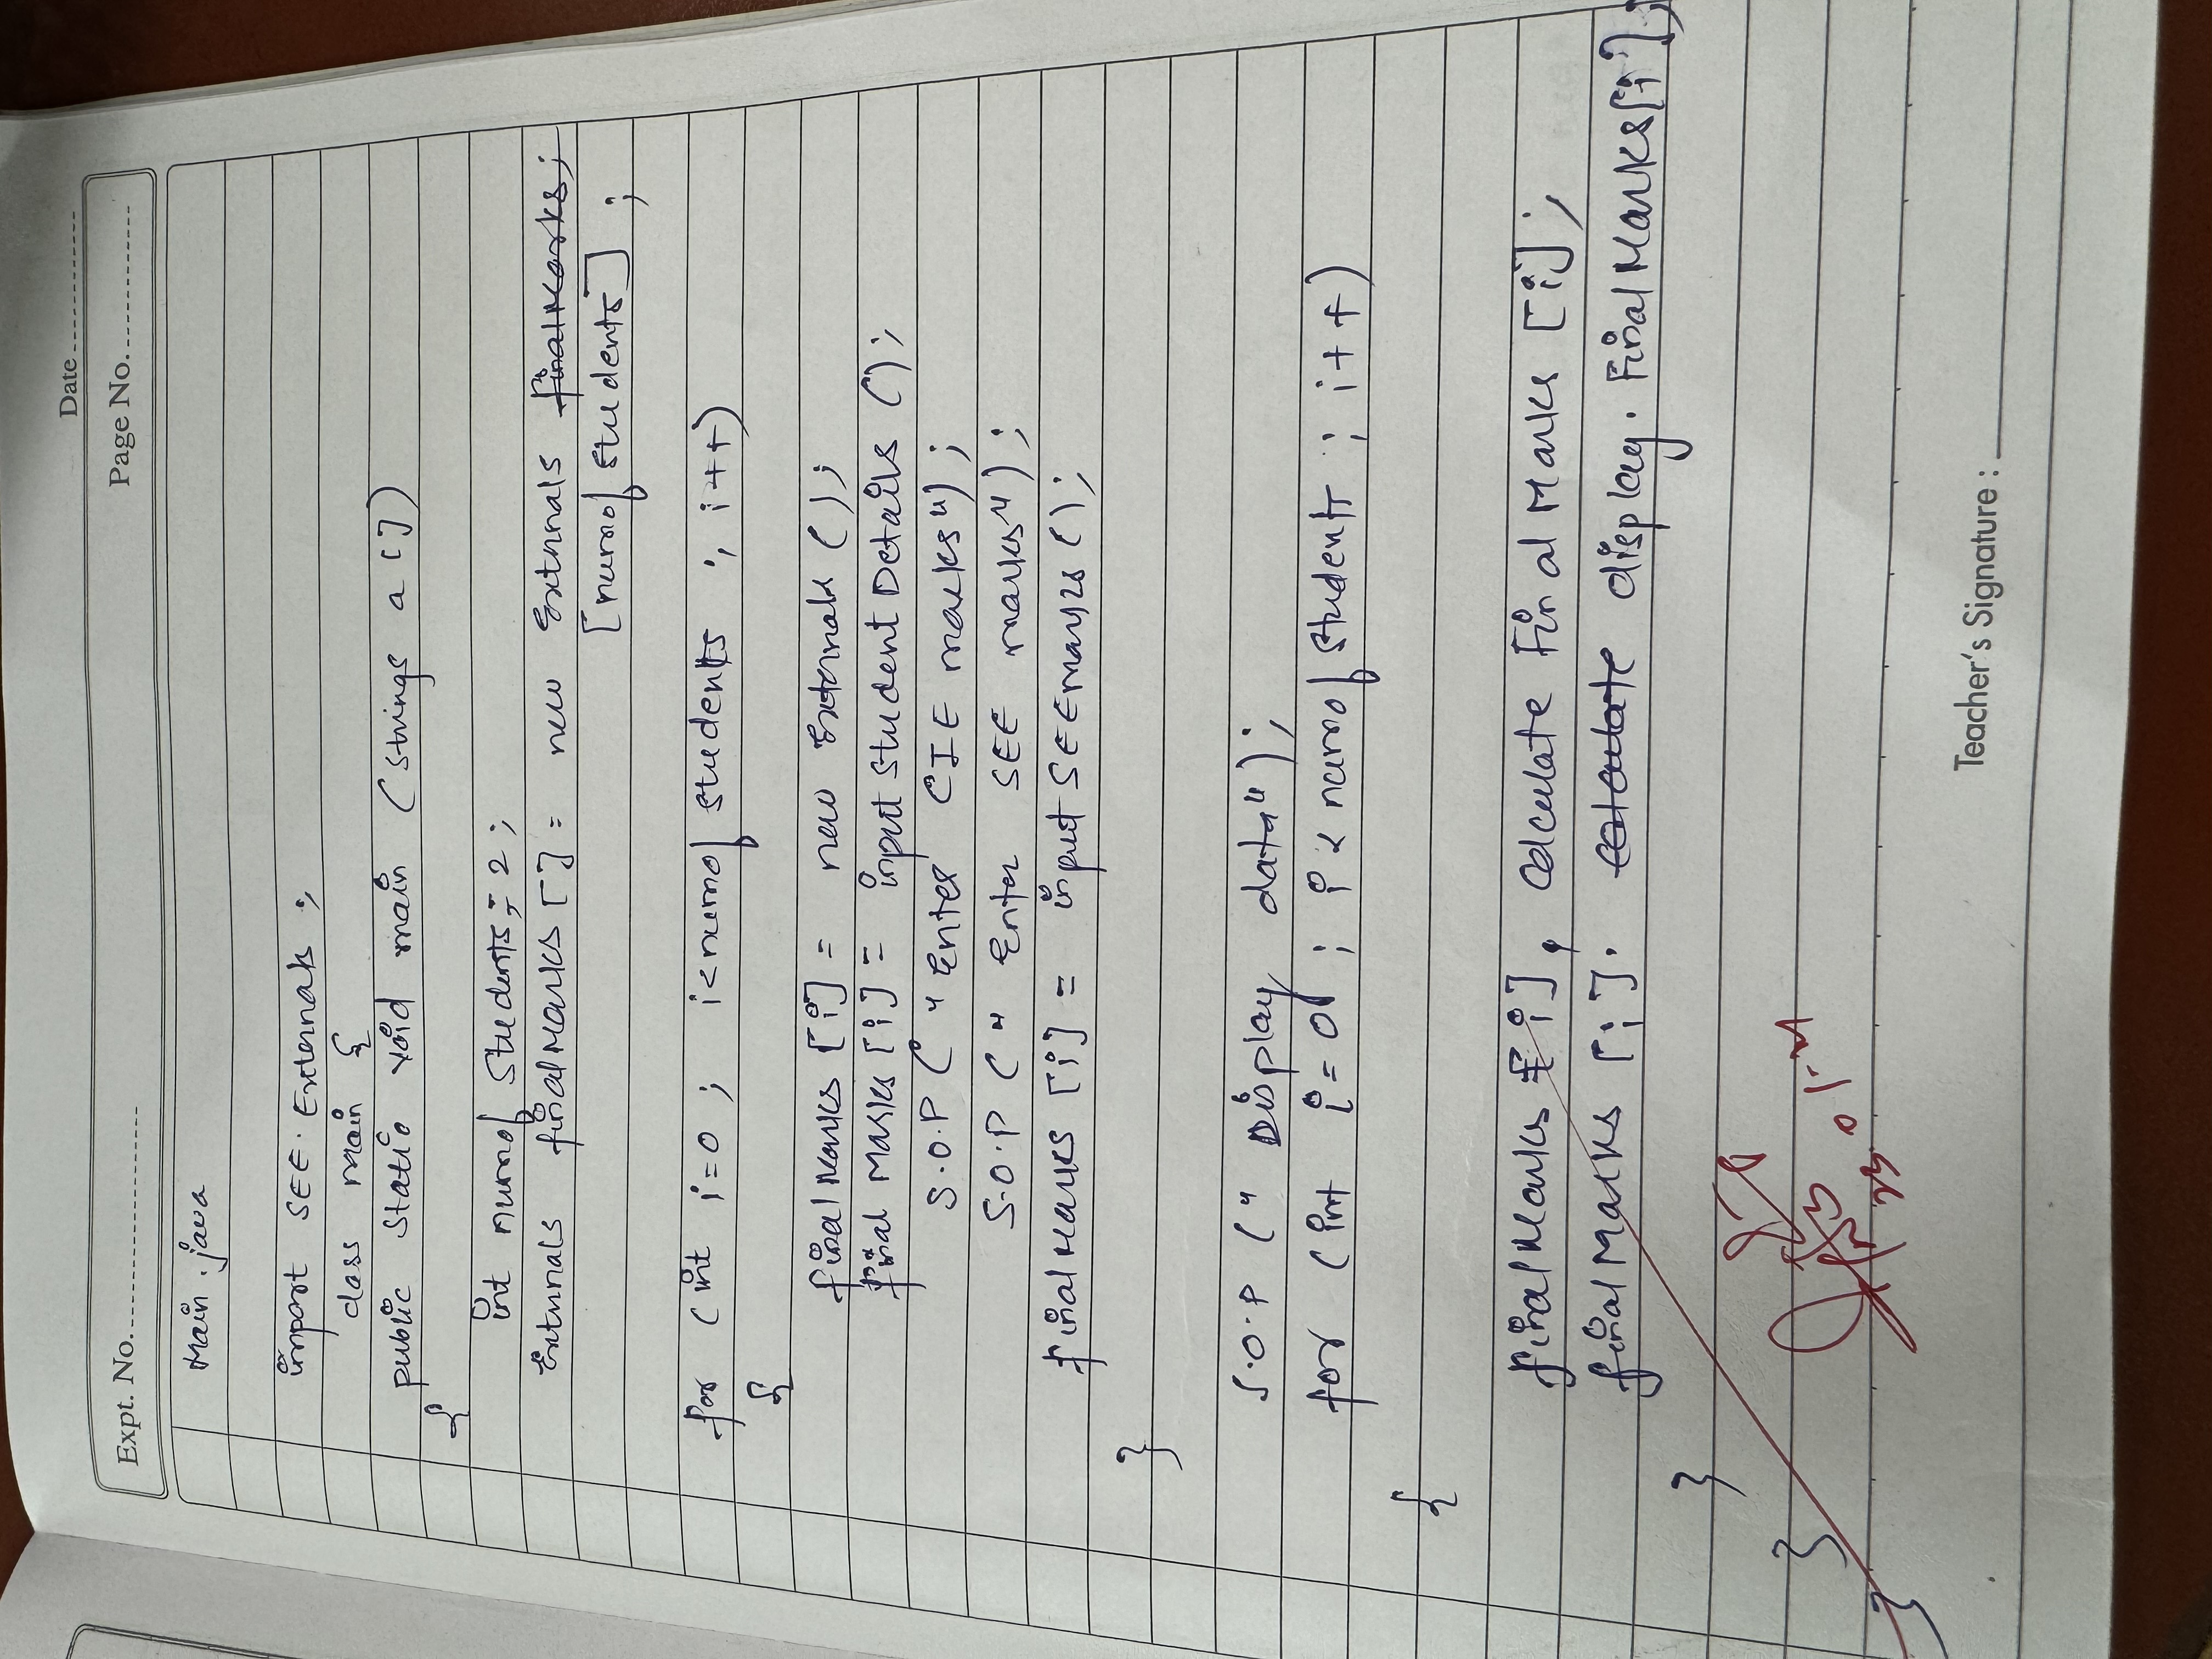 Date
Expt. No.
Page No.
Main.java
import SEE.Externals ;
class main {
public static void main (Strings a [])
{
int numof Students = 2 ;
Externals finalMarks [] = new Externals finalMarks;
[numof students] ;
for (int i=0 ; i<numof students ; i++)
{
finalMarks [i] = new Externals ();
final Marks [i] = input Student Details ();
S.O.P (" Enter CIE marks");
S.O.P (" Enter SEE marks");
finalMarks [i] = input SEEmarks ();
}
S.O.P (" Display data");
for (int i=0 ; i < numof Students ; i++)
{
finalMarks [i]. Calculate Final Marks [i];
finalMarks [i]. calculate display. Final Marks[i];
}
}
}
23.01.24
Teacher's Signature :